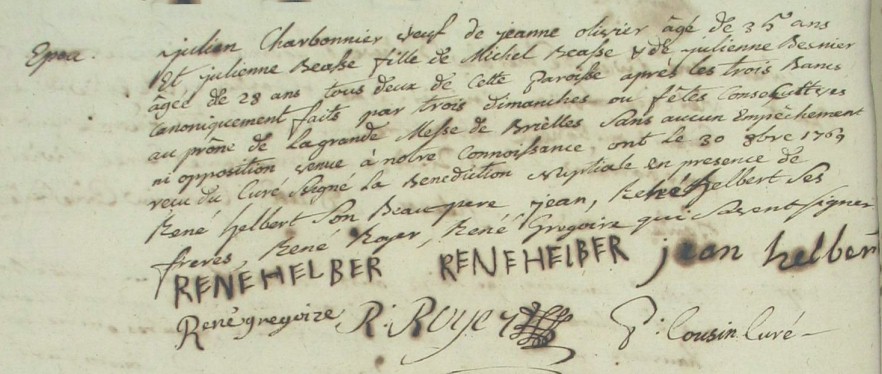 Epou. julien Charbonnier veuf de jeanne olivier âgé de 35 ans
Et julienne Beasse fille de Michel Beasse & de julienne Besnier
âgée de 28 ans tous deux de Cette Paroisse après les trois Bancs
Canoniquement faits par trois dimanches ou fêtes Consecutives
au prône de La grande Messe de Brielles Sans aucun Empêchement
ni opposition venue à nôtre Connoissance ont le 30 8bre 1769
recu du Curé Signé la Benediction Nuptiale En presence de
René helbert Son Beaupere jean, René helbert Ses
freres, René Royer, René Gregoire qui Savent signer
RENEHELBER RENEHELBER jean helbert
René gregoire R: Royer P: Cousin Curé